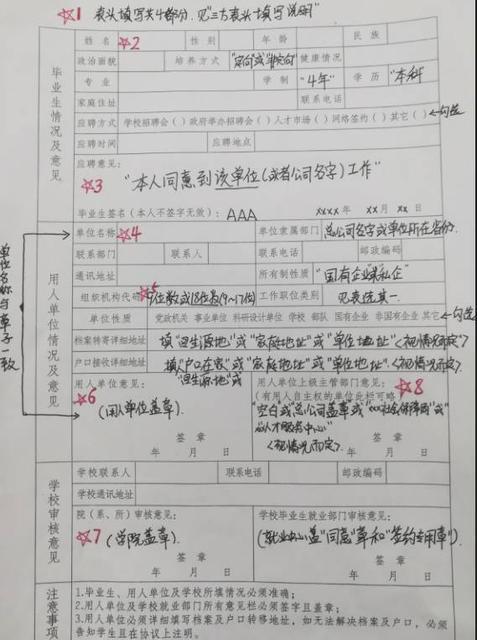 ☆1 表头填写共4部分,见"三方表头填写说明"
姓名 ☆2 性别 年龄 民族
政治面貌 培养方式 "定向"或"非定向" 健康情况
专业 学制 "4年" 学历 "本科"
家庭住址 联系电话
应聘方式 学校招聘会( )政府举办招聘会( )人才市场( )网络签约( )其它( ) 勾选
应聘时间 应聘地点
应聘意见:
☆3 "本人同意到该单位(或者公司名字)工作"
毕业生签名(本人不签字无效): AAA xxxx年 xx月 xx日
毕业生情况及意见
单位名称 ☆4 单位隶属部门 总公司名字或单位所在省份
联系部门 联系人 联系电话 邮政编码
通讯地址 所有制性质 "国有企业或私企"
组织机构代码 ☆5 9位数或18位是(9~17位) 工作职位类别 见表选其一
单位性质 党政机关 事业单位 科研设计单位 学校 部队 国有企业 非国有企业 其它 勾选
档案转寄详细地址 填"回生源地"或"家庭地址"或"单位地址"<视情况而定>
户口接转详细地址 填"户口在家"或"家庭地址"或"单位地址"<视情况而定>
"回生源地"或
用人单位意见: 用人单位上级主管部门意见:
(有用人自主权的单位此栏可略) ☆8
☆6 (用人单位盖章) "空白或"总公司盖章或"xxx社会保障局"或
"xx人才服务中心"
<视情况而定>
签章 签章
年 月 日 年 月 日
用人单位情况及意见
单位名称与章子一致
学校联系人 联系电话 邮政编码
学校通讯地址
院(系、所)审核意见: 学校毕业生就业部门审核意见:
☆7 (学院盖章) (就业中心盖"同意"章和"签约专用章")
签章 签章
年 月 日 年 月 日
学校审核意见
注意事项
1.毕业生、用人单位及学校所填情况必须准确;
2.用人单位及学校就业部门所有意见栏必须签字且盖章;
3.用人单位必须详细填写档案及户口转移地址,如无法解决档案及户口,必须
告知学生且在协议上注明。